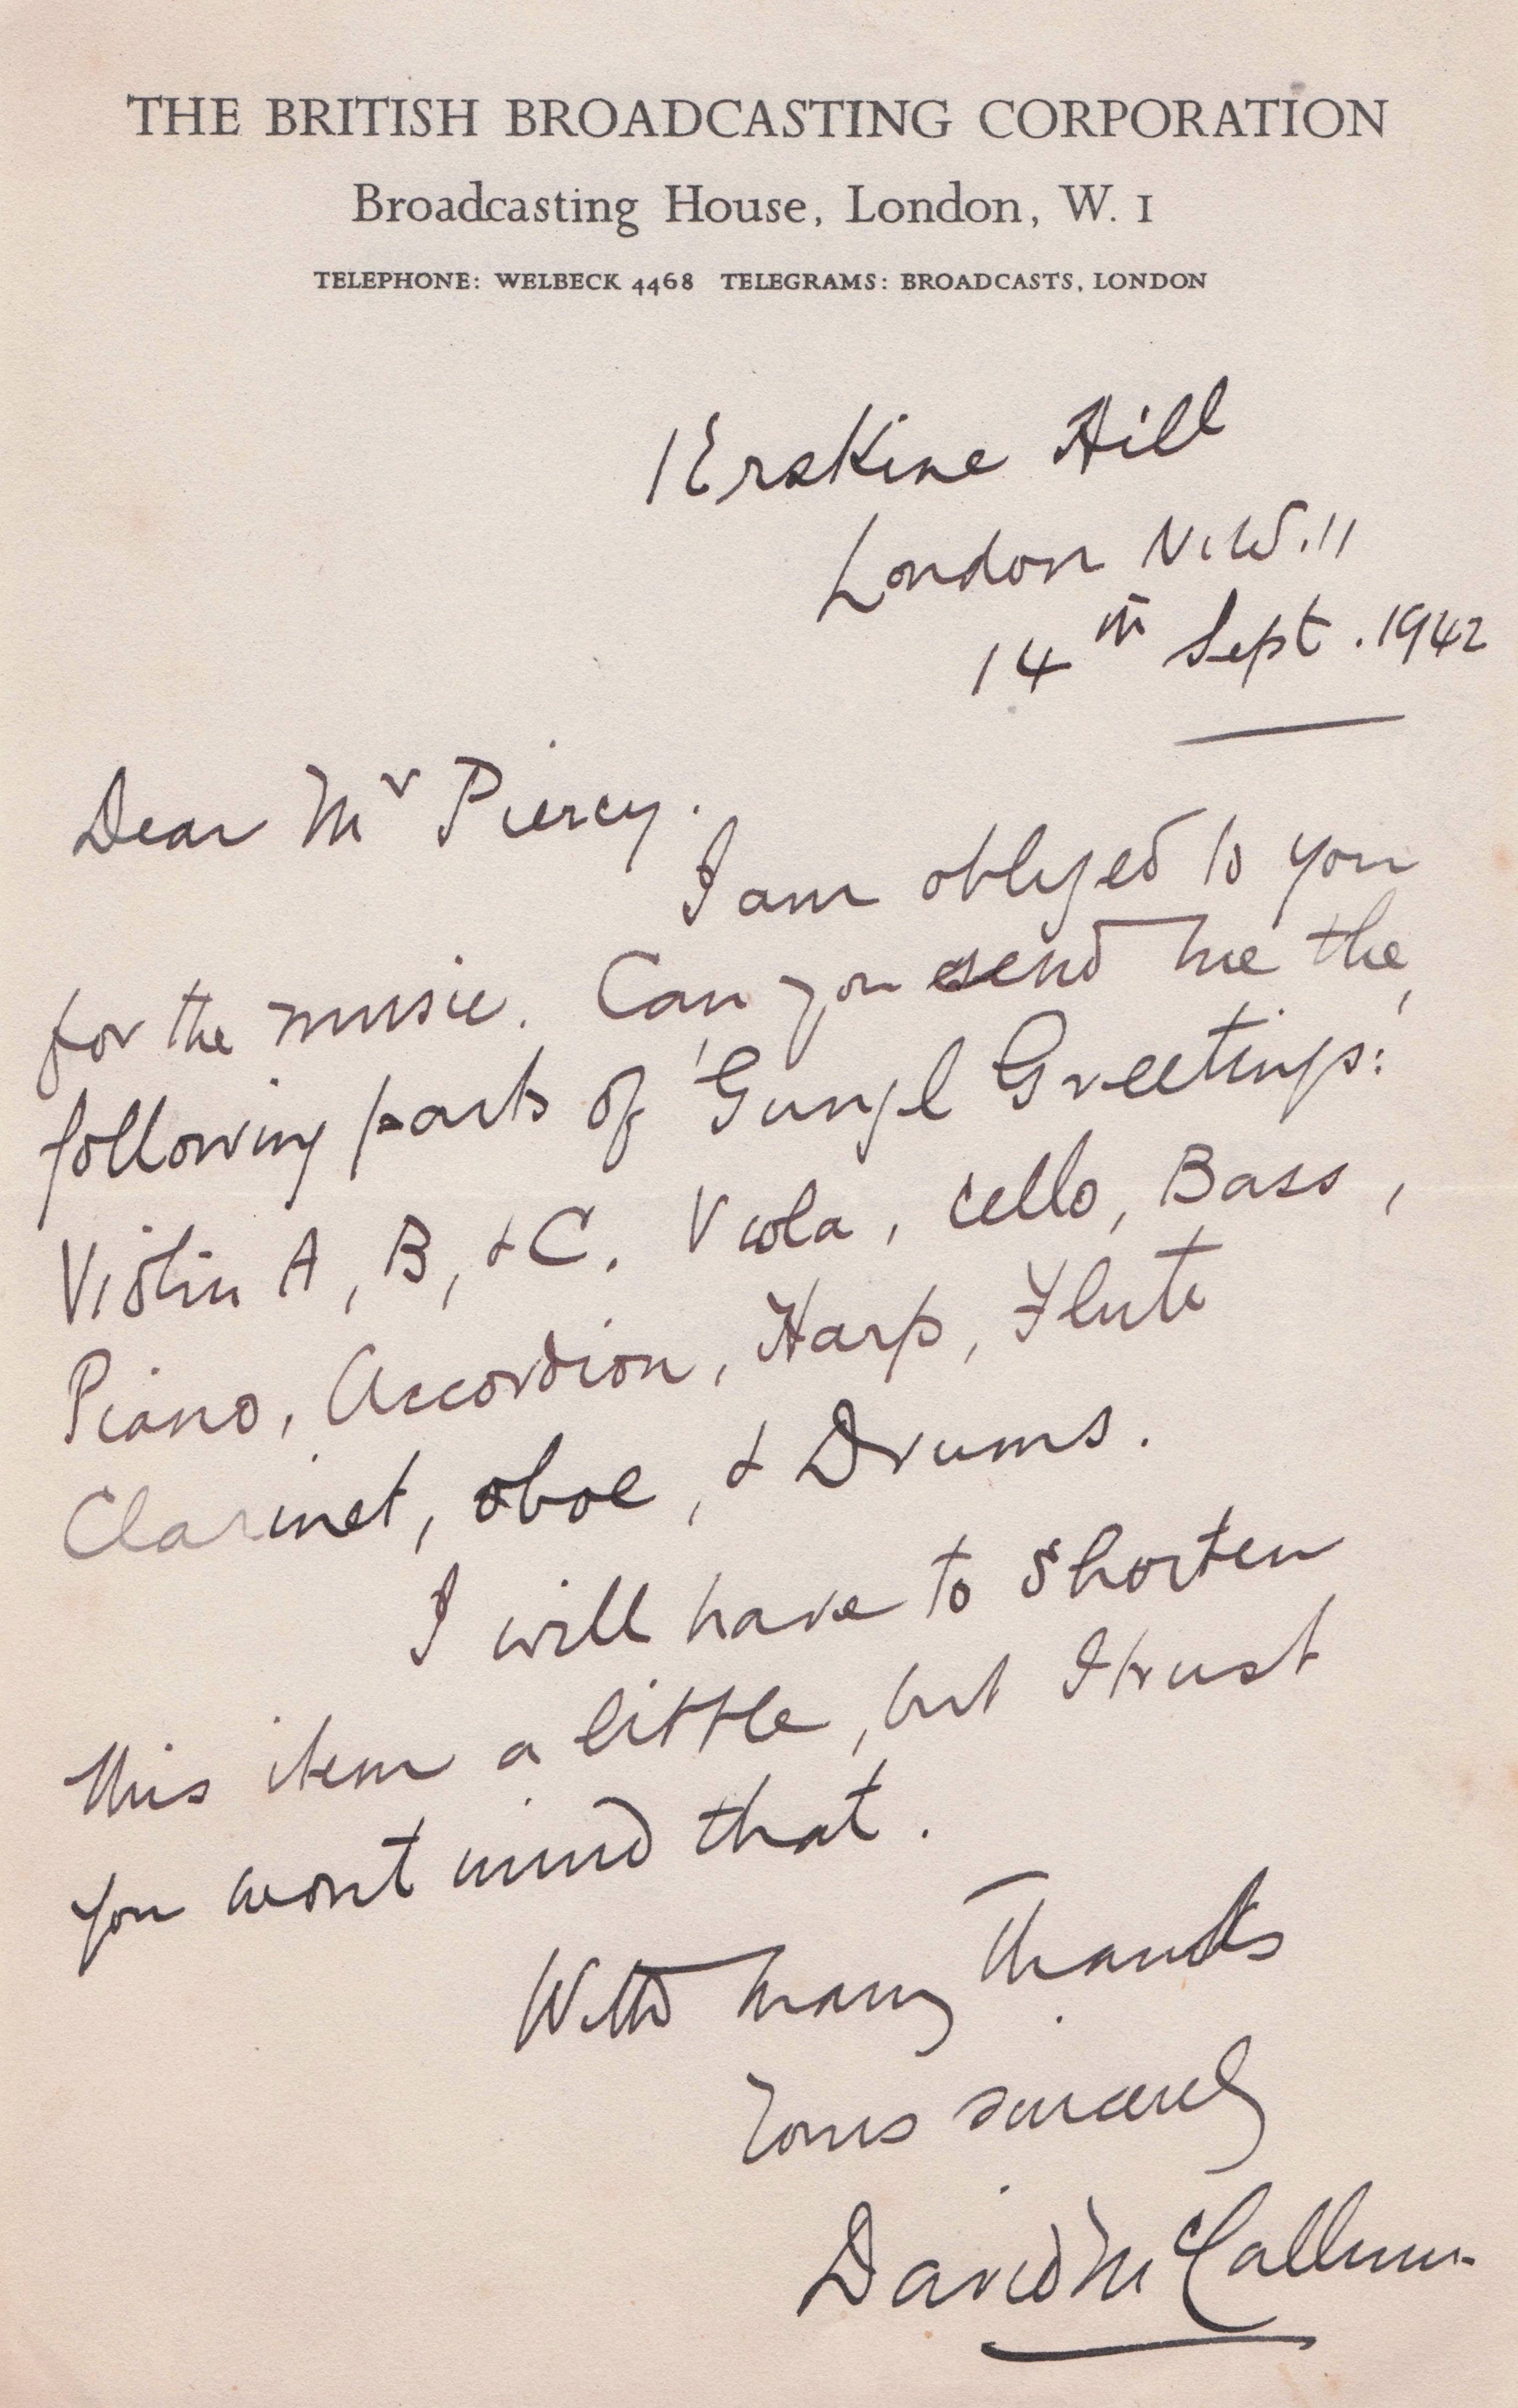 THE BRITISH BROADCASTING CORPORATION
Broadcasting House, London, W. 1
TELEPHONE: WELBECK 4468 TELEGRAMS: BROADCASTS, LONDON
1 Erskine Hill
London N.W.11
14th Sept. 1942
Dear Mr Piercy.
I am obliged to you
for the music. Can you send me the
following parts of 'Gungl Greetings':
Violin A, B, & C. Viola, Cello, Bass,
Piano, Accordion, Harp, Flute
Clarinet, oboe, & Drums.
I will have to shorten
this item a little, but I trust
you wont mind that.
With many Thanks
Yours sincerely
David McCallum